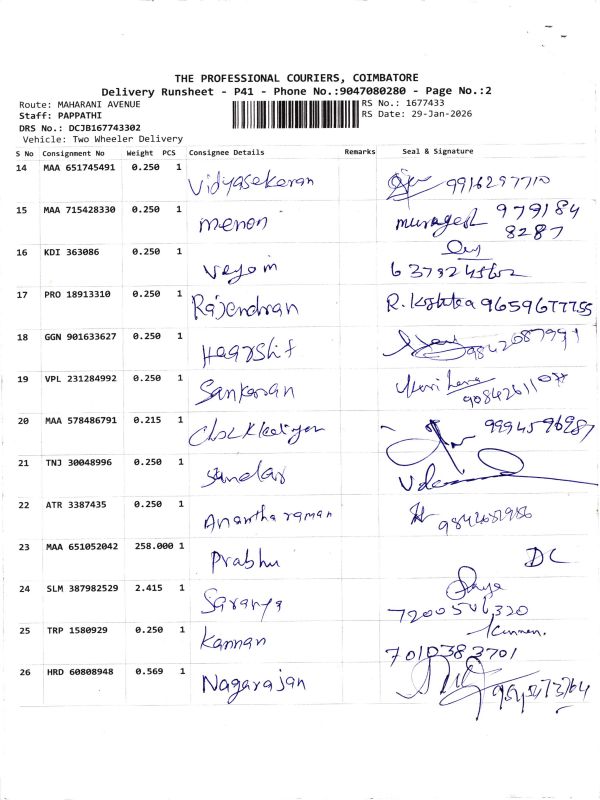 THE PROFESSIONAL COURIERS, COIMBATORE
Delivery Runsheet - P41 - Phone No.:9047080280 - Page No.:2
Route: MAHARANI AVENUE RS No.: 1677433
Staff: PAPPATHI RS Date: 29-Jan-2026
DRS No.: DCJB167743302
Vehicle: Two Wheeler Delivery
S No Consignment No Weight PCS Consignee Details Remarks Seal & Signature
14 MAA 651745491 0.250 1 Vidyasekeran 9916297710
15 MAA 715428330 0.250 1 menon murugesh 979184
8287
16 KDI 363086 0.250 1
17 PRO 18913310 0.250 1 Rajendran R. 9659677755
18 GGN 901633627 0.250 1 Haarshit 9842087991
19 VPL 231284992 0.250 1 Sankaran
20 MAA 578486791 0.215 1 9994596987
21 TNJ 30048996 0.250 1 Sundar
22 ATR 3387435 0.250 1 Anantha raman
23 MAA 651052042 258.000 1 Prabhu DC
24 SLM 387982529 2.415 1 Saranya
7200506320
25 TRP 1580929 0.250 1 Kannan Kannan.
7010383701
26 HRD 60808948 0.569 1 Nagarajan